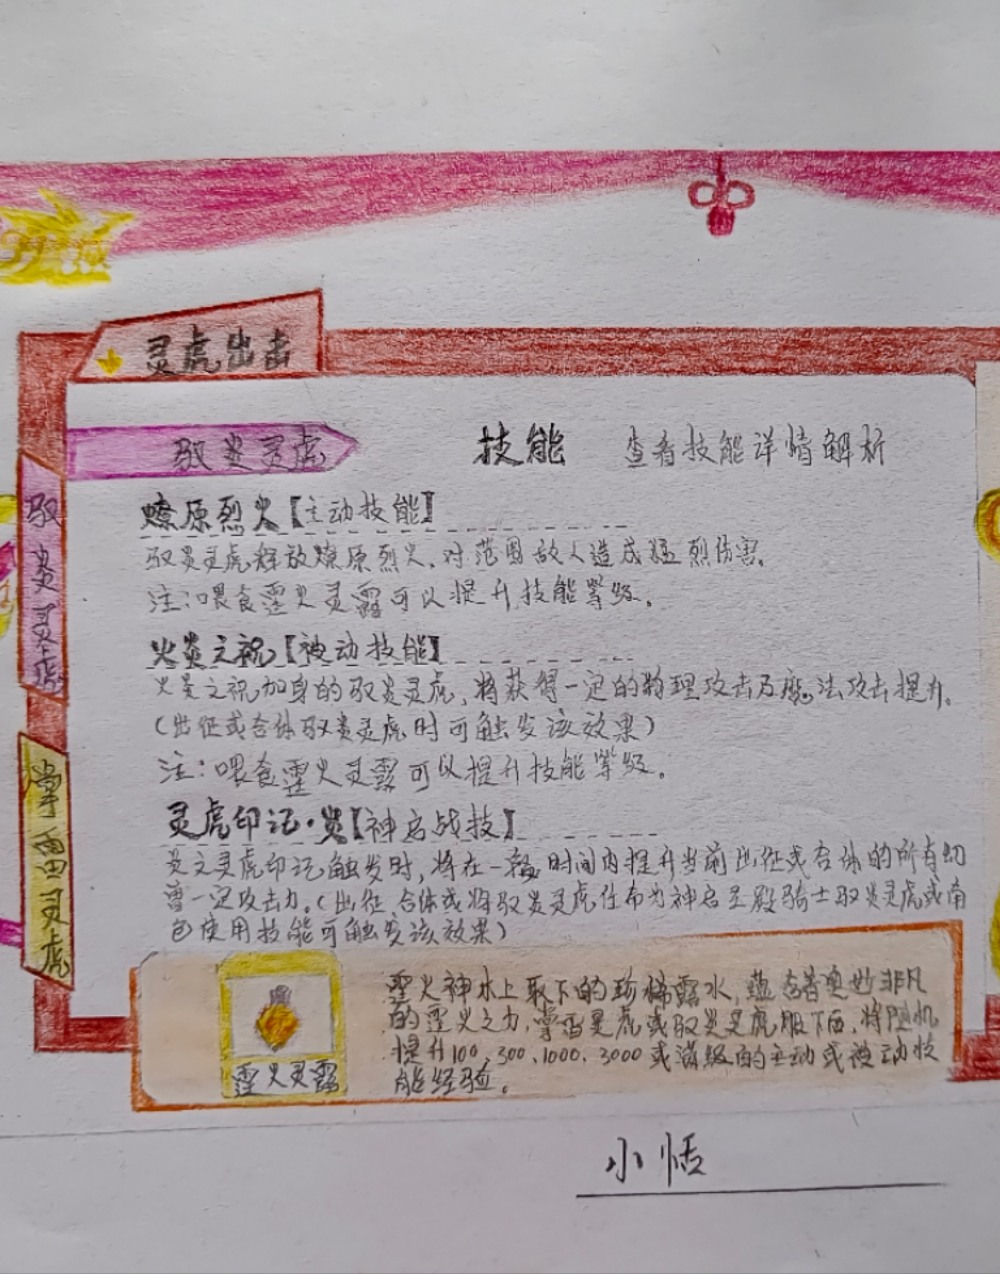 灵虎出击
驭炎灵虎
技能 查看技能详情解析
驭炎灵虎
掌雷灵虎
燎原烈火【主动技能】
驭炎灵虎释放燎原烈火，对范围敌人造成猛烈伤害。
注：喂食霆火灵露可以提升技能等级。
火炎之祝【被动技能】
火炎之祝加身的驭炎灵虎，将获得一定的物理攻击及魔法攻击提升。
（出征或合体驭炎灵虎时可触发该效果）
注：喂食霆火灵露可以提升技能等级。
灵虎印记·炎【神启战技】
炎之灵虎印记触发时，将在一段时间内提升当前出征或合体的所有幻
兽一定攻击力。（出征、合体或将驭炎灵虎任命为神启圣殿骑士驭炎灵虎或角
色使用技能可触发该效果）
霆火神水上取下的珍稀露水，蕴含着奥妙非凡
的霆火之力，掌雷灵虎或驭炎灵虎服下后，将随机
提升100、300、1000、3000或满级的主动或被动技
能经验。
霆火灵露
小恬